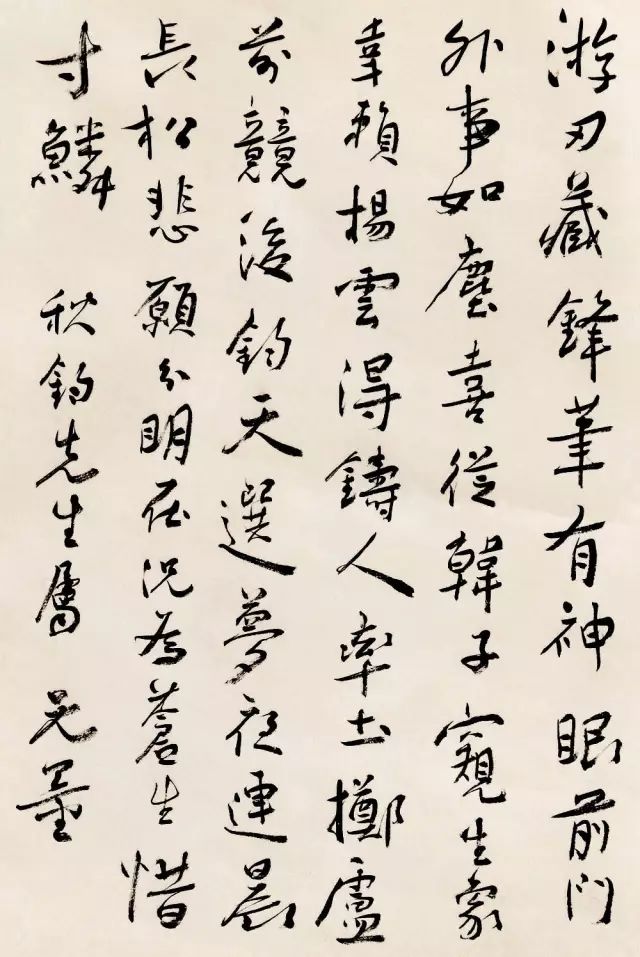 游刃藏鋒筆有神眼前門
外事如塵喜從韓子窺生象
幸賴揚雲得鑄人率土擲盧
競後鈞天選夢夜連晨
長松悲願分明在況為蒼生惜
寸鱗 秋鈞先生屬 无量